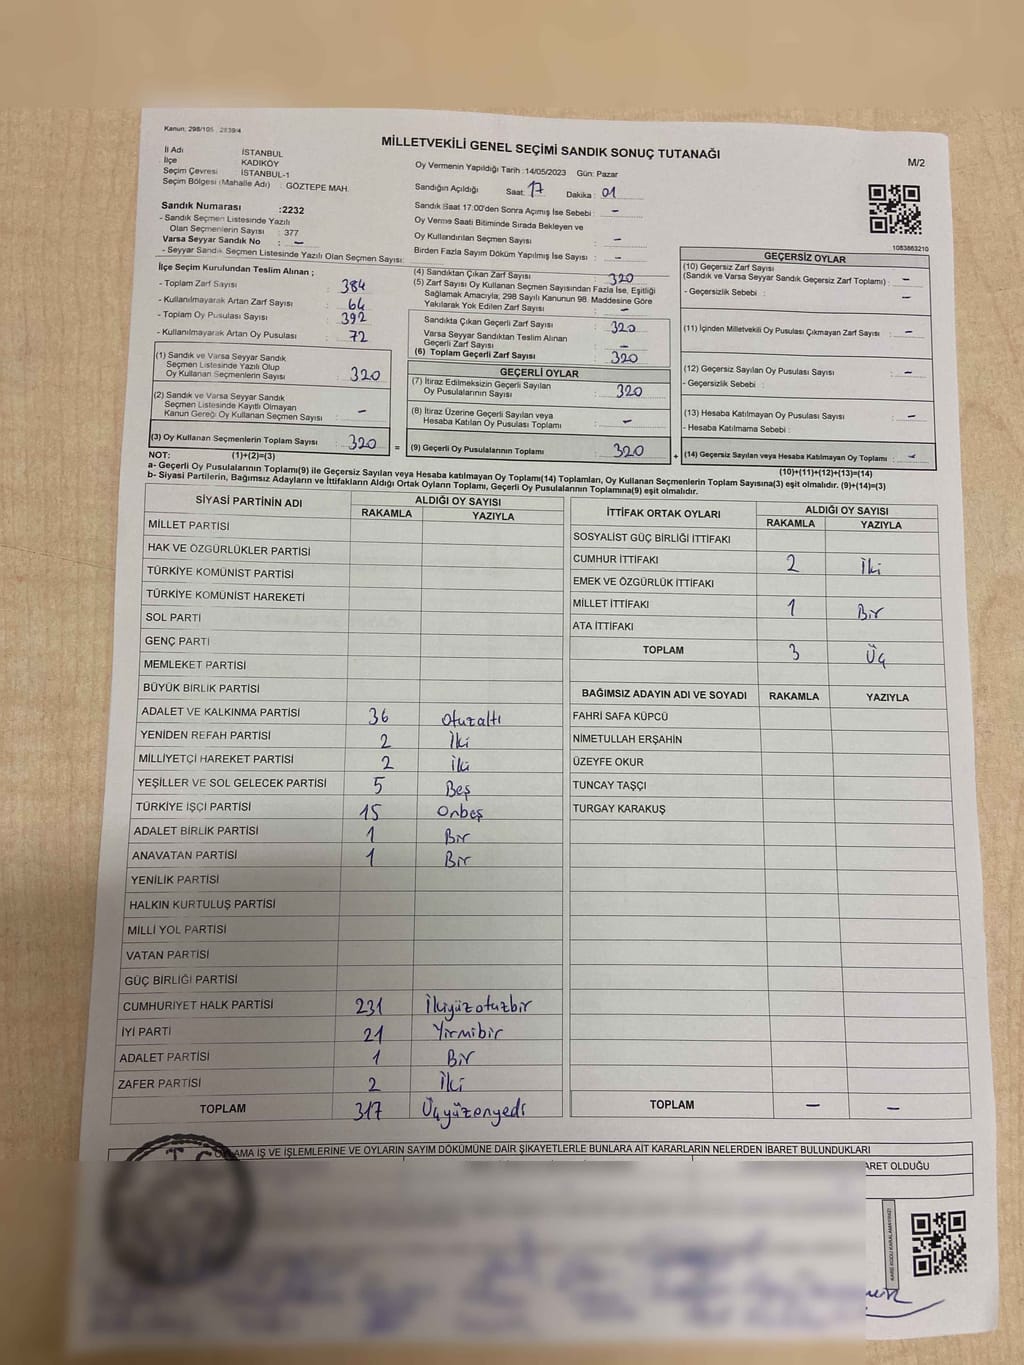 Kanun, 298/105 2839/4
MİLLETVEKİLİ GENEL SEÇİMİ SANDIK SONUÇ TUTANAĞI
M/2
İl Adı İSTANBUL
İlçe KADIKÖY
Seçim Çevresi İSTANBUL-1
Seçim Bölgesi (Mahalle Adı) : GÖZTEPE MAH.
Oy Vermenin Yapıldığı Tarih :14/05/2023 Gün: Pazar
Sandığın Açıldığı Saat: 17 Dakika : 01
Sandık Saat 17:00'den Sonra Açımış İse Sebebi : –
Oy Verme Saati Bitiminde Sırada Bekleyen ve
Oy Kullandırılan Seçmen Sayısı : –
Birden Fazla Sayım Döküm Yapılmış İse Sayısı : –
1083863210
Sandık Numarası :2232
- Sandık Seçmen Listesinde Yazılı
Olan Seçmenlerin Sayısı : 377
Varsa Seyyar Sandık No : –
- Seyyar Sandık Seçmen Listesinde Yazılı Olan Seçmen Sayısı:
İlçe Seçim Kurulundan Teslim Alınan ;
- Toplam Zarf Sayısı : 384
- Kullanılmayarak Artan Zarf Sayısı : 64
- Toplam Oy Pusulası Sayısı : 392
- Kullanılmayarak Artan Oy Pusulası : 72
(1) Sandık ve Varsa Seyyar Sandık
Seçmen Listesinde Yazılı Olup
Oy Kullanan Seçmenlerin Sayısı : 320
(2) Sandık ve Varsa Seyyar Sandık
Seçmen Listesinde Kayıtlı Olmayan
Kanun Gereği Oy Kullanan Seçmen Sayısı : –
(3) Oy Kullanan Seçmenlerin Toplam Sayısı : 320 =
(4) Sandıktan Çıkan Zarf Sayısı : 320
(5) Zarf Sayısı Oy Kullanan Seçmen Sayısından Fazla İse, Eşitliği
Sağlamak Amacıyla; 298 Sayılı Kanunun 98. Maddesine Göre
Yakılarak Yok Edilen Zarf Sayısı : –
Sandıkta Çıkan Geçerli Zarf Sayısı : 320
Varsa Seyyar Sandıktan Teslim Alınan
Geçerli Zarf Sayısı : –
(6) Toplam Geçerli Zarf Sayısı : 320
GEÇERLİ OYLAR
(7) İtiraz Edilmeksizin Geçerli Sayılan
Oy Pusulalarının Sayısı : 320
(8) İtiraz Üzerine Geçerli Sayılan veya
Hesaba Katılan Oy Pusulası Toplamı : –
(9) Geçerli Oy Pusulalarının Toplamı : 320 +
GEÇERSİZ OYLAR
(10) Geçersiz Zarf Sayısı
(Sandık ve Varsa Seyyar Sandık Geçersiz Zarf Toplamı) : –
- Geçersizlik Sebebi : –
(11) İçinden Milletvekili Oy Pusulası Çıkmayan Zarf Sayısı : –
(12) Geçersiz Sayılan Oy Pusulası Sayısı : –
- Geçersizlik Sebebi :
(13) Hesaba Katılmayan Oy Pusulası Sayısı : –
- Hesaba Katılmama Sebebi :
(14) Geçersiz Sayılan veya Hesaba Katılmayan Oy Toplamı : –
NOT: (1)+(2)=(3)
(10)+(11)+(12)+(13)=(14)
a- Geçerli Oy Pusulalarının Toplamı(9) ile Geçersiz Sayılan veya Hesaba katılmayan Oy Toplamı(14) Toplamları, Oy Kullanan Seçmenlerin Toplam Sayısına(3) eşit olmalıdır. (9)+(14)=(3)
b- Siyasi Partilerin, Bağımsız Adayların ve İttifakların Aldığı Ortak Oyların Toplamı, Geçerli Oy Pusulalarının Toplamına(9) eşit olmalıdır.
SİYASİ PARTİNİN ADI ALDIĞI OY SAYISI
RAKAMLA YAZIYLA
MİLLET PARTİSİ
HAK VE ÖZGÜRLÜKLER PARTİSİ
TÜRKİYE KOMÜNİST PARTİSİ
TÜRKİYE KOMÜNİST HAREKETİ
SOL PARTİ
GENÇ PARTİ
MEMLEKET PARTİSİ
BÜYÜK BİRLİK PARTİSİ
ADALET VE KALKINMA PARTİSİ 36 otuzaltı
YENİDEN REFAH PARTİSİ 2 İki
MİLLİYETÇİ HAREKET PARTİSİ 2 iki
YEŞİLLER VE SOL GELECEK PARTİSİ 5 Beş
TÜRKİYE İŞÇİ PARTİSİ 15 Onbeş
ADALET BİRLİK PARTİSİ 1 Bir
ANAVATAN PARTİSİ 1 Bir
YENİLİK PARTİSİ
HALKIN KURTULUŞ PARTİSİ
MİLLİ YOL PARTİSİ
VATAN PARTİSİ
GÜÇ BİRLİĞİ PARTİSİ
CUMHURİYET HALK PARTİSİ 231 İkiyüzotuzbir
İYİ PARTİ 21 Yirmibir
ADALET PARTİSİ 1 Bir
ZAFER PARTİSİ 2 İki
TOPLAM 317 Üçyüzonyedi
İTTİFAK ORTAK OYLARI ALDIĞI OY SAYISI
RAKAMLA YAZIYLA
SOSYALİST GÜÇ BİRLİĞİ İTTİFAKI
CUMHUR İTTİFAKI 2 İki
EMEK VE ÖZGÜRLÜK İTTİFAKI
MİLLET İTTİFAKI 1 Bir
ATA İTTİFAKI
TOPLAM 3 Üç
BAĞIMSIZ ADAYIN ADI VE SOYADI RAKAMLA YAZIYLA
FAHRİ SAFA KÜPCÜ
NİMETULLAH ERŞAHİN
ÜZEYFE OKUR
TUNCAY TAŞÇI
TURGAY KARAKUŞ
TOPLAM – –
OYLAMA İŞ VE İŞLEMLERİNE VE OYLARIN SAYIM DÖKÜMÜNE DAİR ŞİKAYETLERLE BUNLARA AİT KARARLARIN NELERDEN İBARET BULUNDUKLARI
T.C.
OLDUĞU